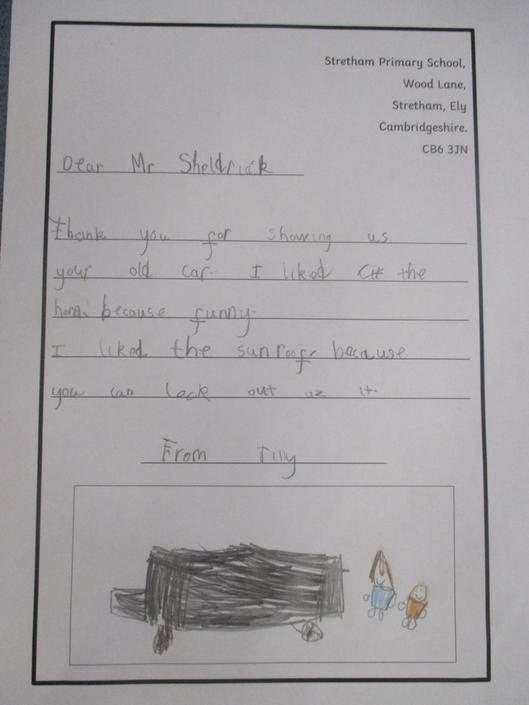 Stretham Primary School,
Wood Lane,
Stretham, Ely
Cambridgeshire.
CB6 3JN
Dear Mr Sheldrick
thank you for showing us
your old car. I liked the
because funny.
I liked the sunroof because
you can look out uz it.
From Tilly